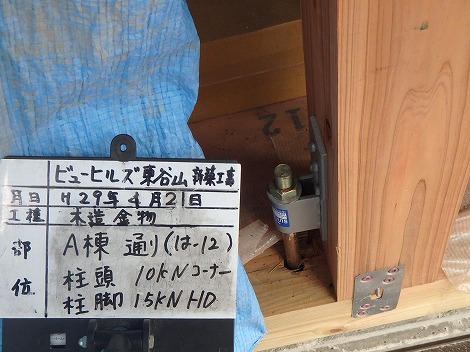 ビューヒルズ東谷山新築工事
月日 H29年4月21日
工種 木造金物
部位 A棟 通り(は-12)
柱頭 10kNコーナー
柱脚 15kN HD
12